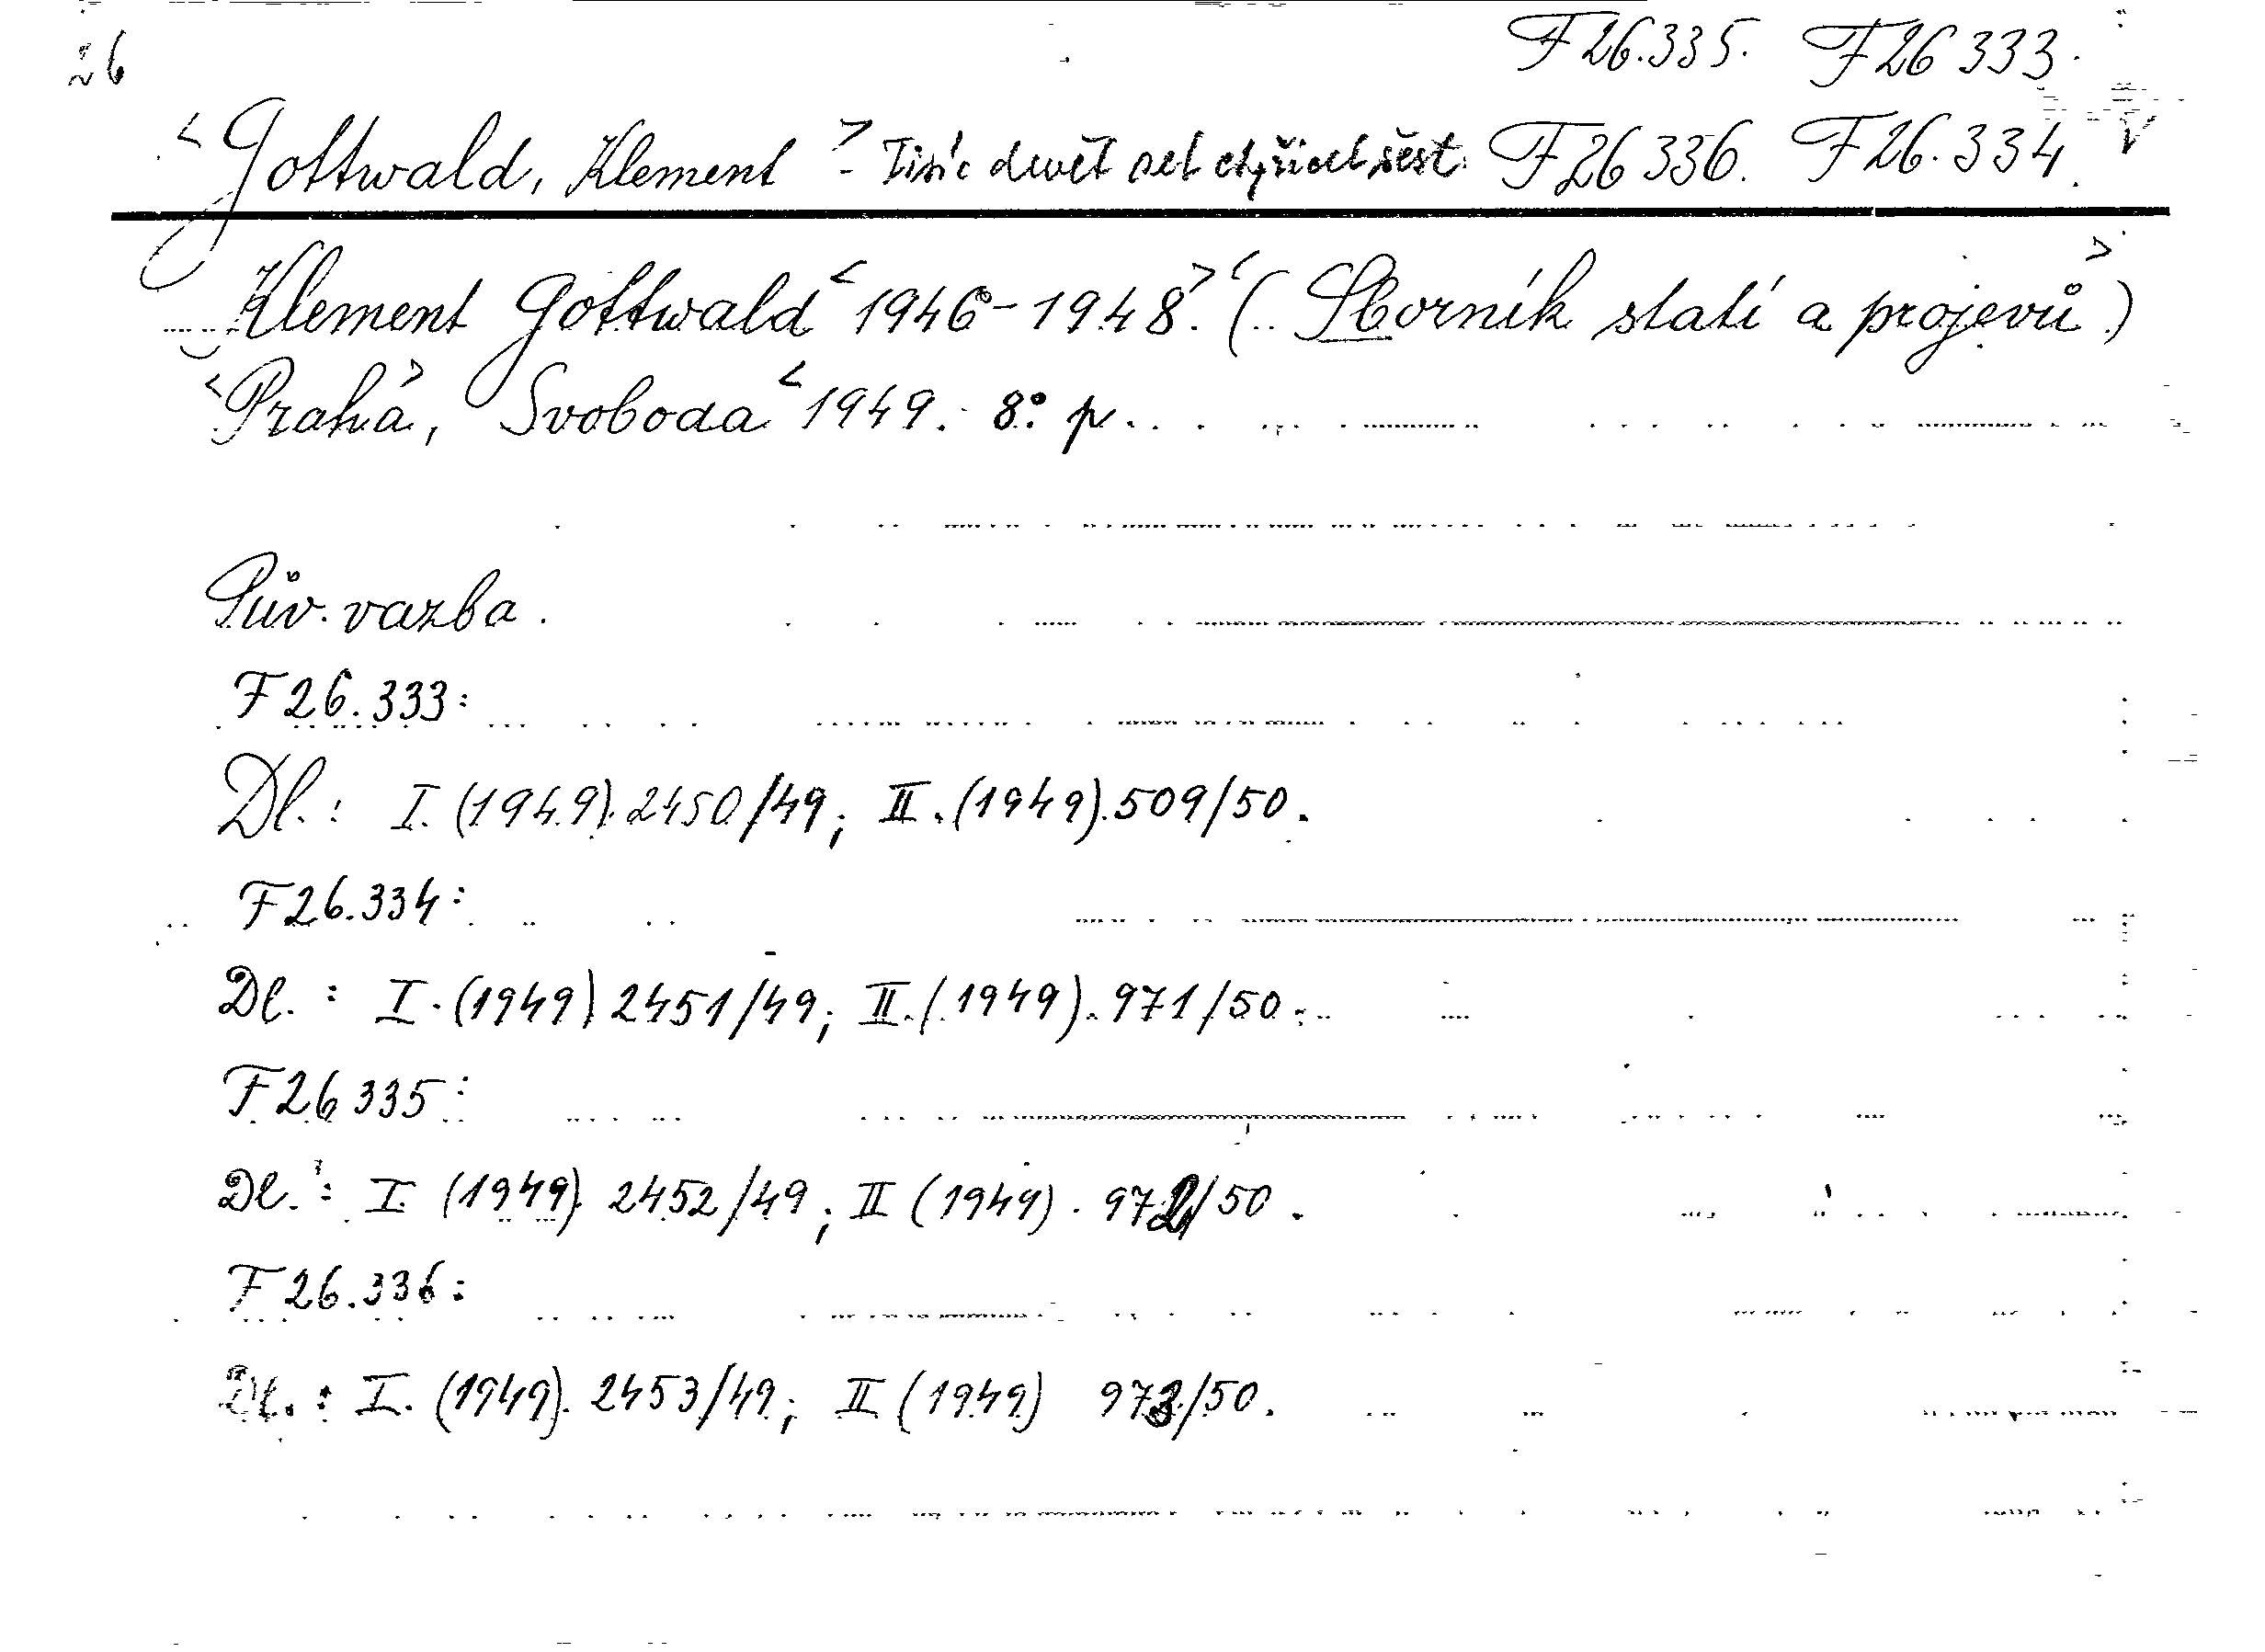 26
F 26.335. F 26 333.
<Gottwald, Klement> - Tisíc devět set čtyřicet šest F 26 336. F 26.334.
Klement Gottwald <1946-1948>. <(Sborník statí a projevů>)
<Praha>, Svoboda <1949. 8° p.
Pův. vazba.
F 26.333:
Dl.: I. (1949). 2450/49; II. (1949). 509/50.
F 26.334:
Dl.: I. (1949) 2451/49; II. (1949). 971/50.
F 26 335:
Dl.: I. (1949). 2452/49; II (1949). 972/50.
F 26.336:
Dl.: I. (1949). 2453/49; II (1949) 973/50.